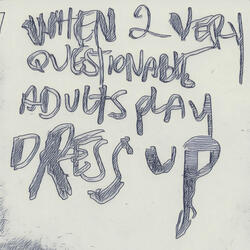 WHEN 2 VERY
QUESTIONABLE
ADULTS PLAY
DRESS UP